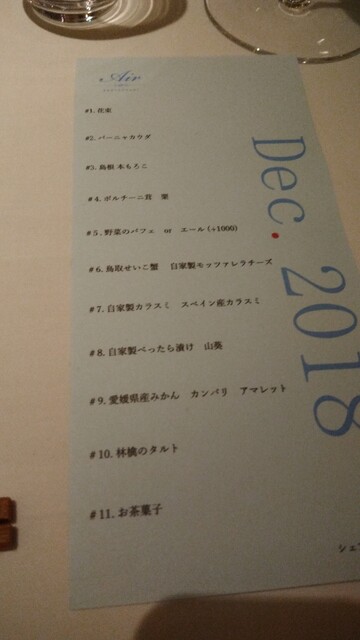 Air
#1. 花束
#2. バーニャカウダ
#3. 島根 本もろこ
#4. ポルチーニ茸 栗
#5. 野菜のパフェ or エール (+1000)
#6. 鳥取せいこ蟹 自家製モッツァレラチーズ
#7. 自家製カラスミ スペイン産カラスミ
#8. 自家製べったら漬け 山葵
#9. 愛媛県産みかん カンパリ アマレット
#10. 林檎のタルト
#11. お茶菓子
Dec. 2018
シェフ